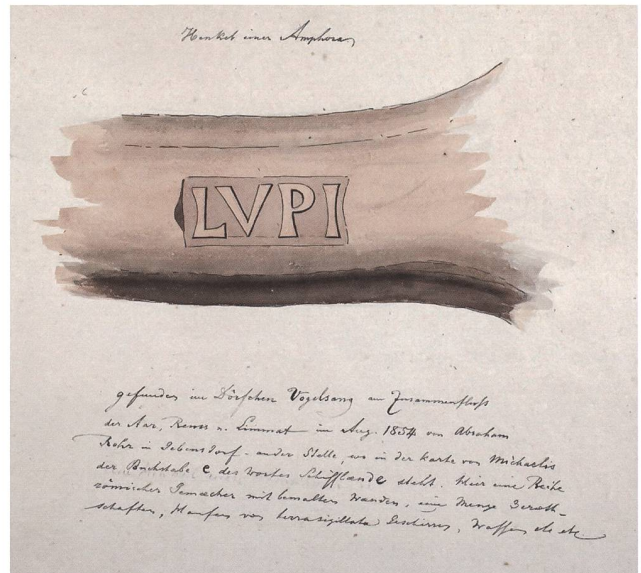 Henkel einer Amphora
LVPI
gefunden im Dörfchen Vogelsang am Zusammenfluss
der Aar, Reuss u. Limmat im Aug. 1854 von Abraham
Rohr in Gebensdorf - an der Stelle, wo in der Karte von Michaelis
der Buchstabe e des Wortes Schifflande steht. Hier eine Reihe
römischer Gemæcher mit bemalten Wænden, eine Menge Geræth-
schaften, Haufen von terrasigillata Geschirres, Waffen etc.